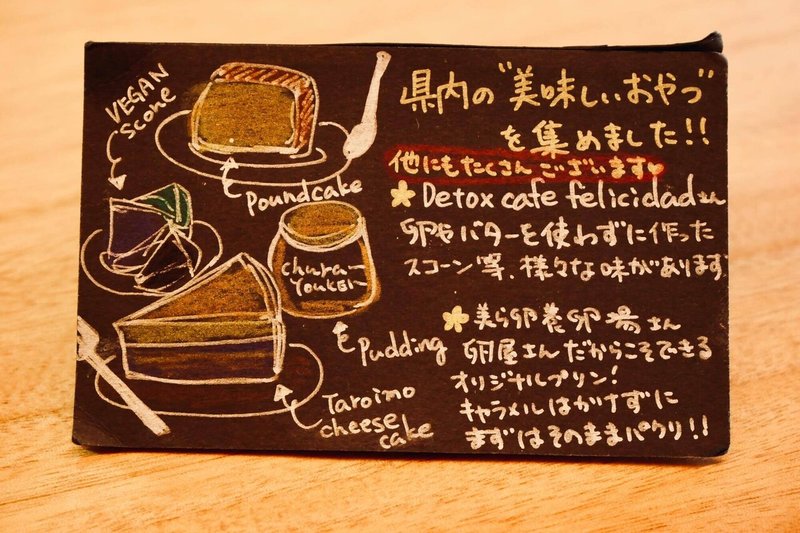 VEGAN
Scone
Poundcake
chura
YOUKEI
Pudding
Taroimo
cheese
cake
県内の"美味しいおやつ"
を集めました!!
他にもたくさんございます♥
Detox cafe felicidadさん
卵やバターを使わずに作った
スコーン等、様々な味があります
美ら卵養卵場さん
卵屋さんだからこそできる
オリジナルプリン!
キャラメルはかけずに
まずはそのままパクリ!!